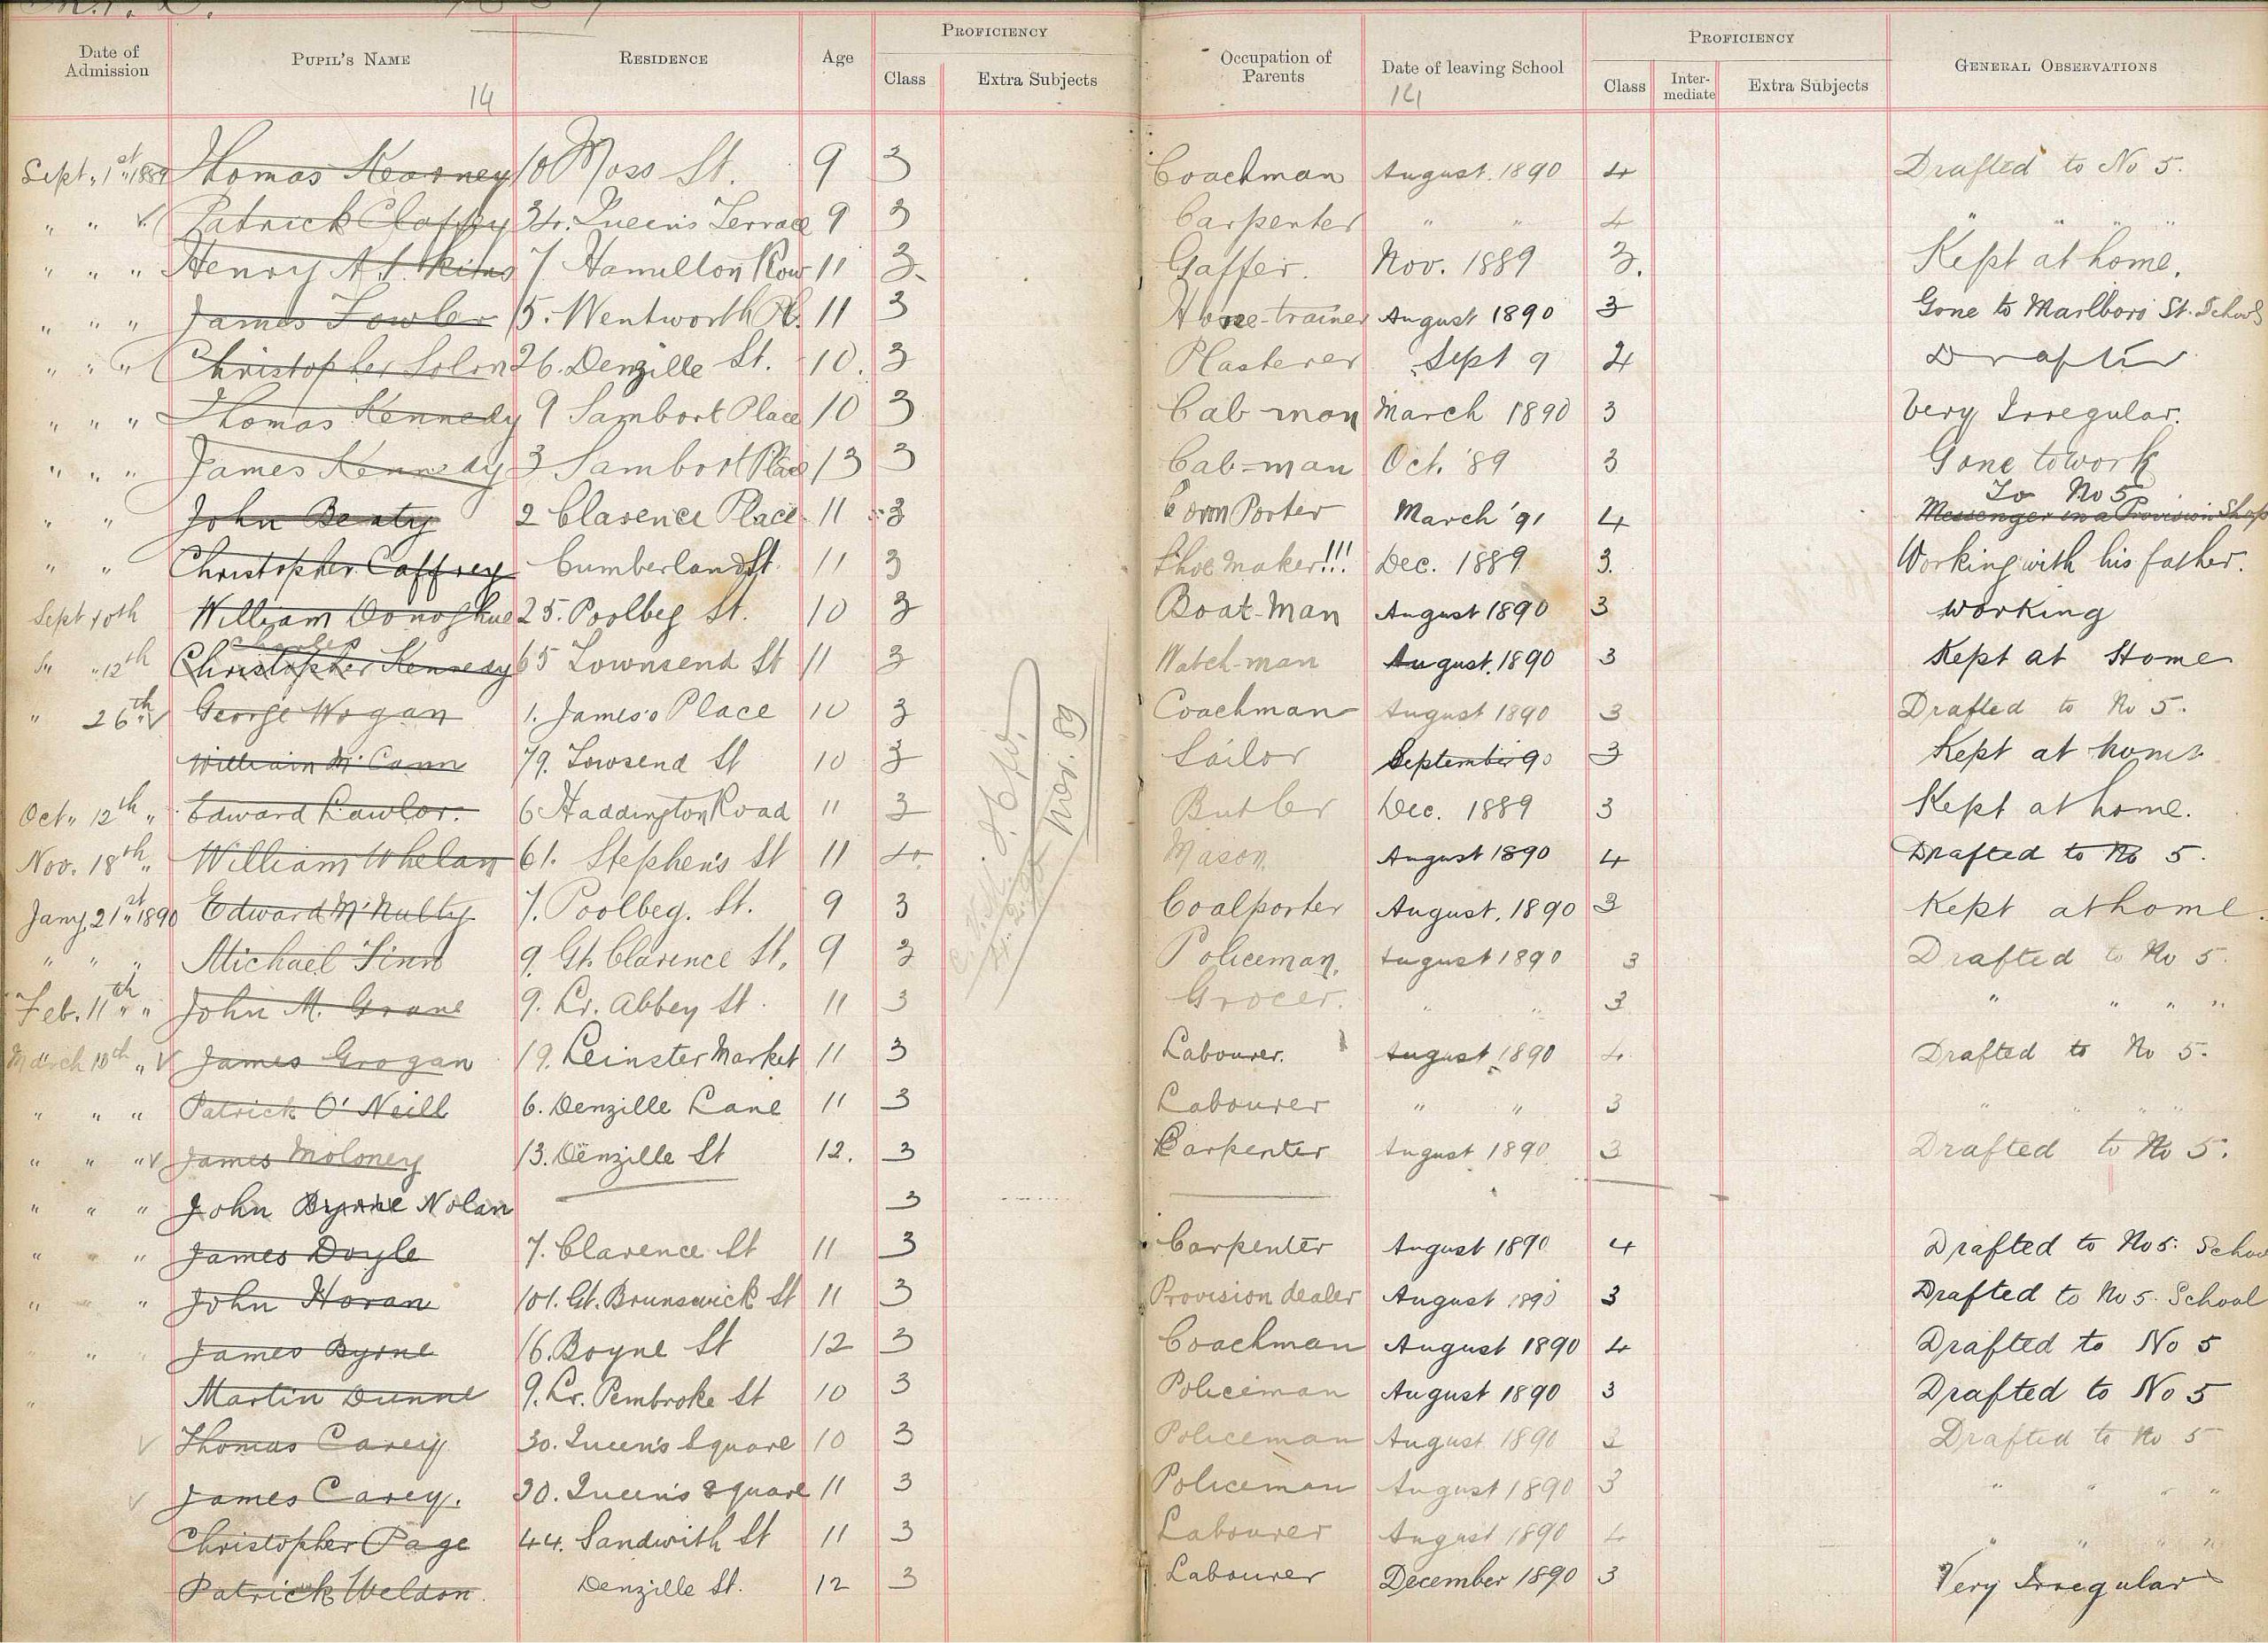 Date of Admission PUPIL'S NAME RESIDENCE Age PROFICIENCY Class Extra Subjects Occupation of Parents Date of leaving School PROFICIENCY Class Inter-mediate Extra Subjects GENERAL OBSERVATIONS
14 14
Sept. 1st 1889 Thomas Kearney 10 Moss St. 9 3 Coachman August. 1890 4 Drafted to No 5.
" " √ Patrick Claffey 34. Queen's Terrace 9 3 Carpenter " " 4 " " " "
" " " Henry Atkins 7 Hamilton Row 11 3. Gaffer. Nov. 1889 3. Kept at home.
" " " James Fowler 5. Wentworth Pl. 11 3 Horse-trainer August 1890 3 Gone to Marlboro' St. Schools
" " " Christopher Solon 26. Denzille St. 10. 3 Plasterer Sept 9 4 Drafted
" " " Thomas Kennedy 9 Sambort Place 10 3 Cab-man March 1890 3 Very Irregular.
" " " James Kennedy 3 Sambort Place 13 3 Cab-man Oct. '89 3 Gone to work
" " John Beaty 2 Clarence Place 11 3 Corn Porter March '91 4 To No 5 Messenger in a Provision Shop
" " Christopher Caffrey Cumberland St 11 3 Shoe maker!!! Dec. 1889 3. Working with his father.
Sept 10th William Donoghue 25. Poolbeg St. 10 3 Boat-Man August 1890 3 working
" 12th Charles Christopher Kennedy 65 Townsend St 11 3 Watch-man August. 1890 3 Kept at Home
" 26th √ George Wogan 1. James's Place 10 3 Coachman August 1890 3 Drafted to No 5.
William McCann 79. Towsend St 10 3 Sailor September 90 3 Kept at home
Oct. 12th " Edward Lawlor. 6 Haddington Road 11 3 Butler Dec. 1889 3 Kept at home.
Nov. 18th " William Whelan 61. Stephen's St 11 4. Mason, August 1890 4 Drafted to No 5.
Jany. 21st 1890 Edward McNulty 7. Poolbeg. St. 9 3 Nov. 89 Coalporter August. 1890 3 Kept at home.
" " " Michael Finn 9. Gt. Clarence St. 9 3 Policeman. August 1890 3 Drafted to No 5.
Feb. 11th " " John M. Grane 9. Lr. Abbey St. 11 3 Grocer. " " 3 " " " "
March 10th " √ James Grogan 19. Leinster Market 11 3 Labourer. August 1890 4 Drafted to No 5.
" " " Patrick O'Neill 6. Denzille Lane 11 3 Labourer " " 3 " " " "
" " " √ James Moloney 13. Denzille St 12. 3 Carpenter August 1890 3 Drafted to No 5.
" " " John Byrne Nolan 3
" " " James Doyle 7. Clarence St 11 3 Carpenter August 1890 4 Drafted to No 5. School
" " " John Horan 101. Gt. Brunswick St 11 3 Provision dealer August 1890 3 Drafted to No 5. School
" James Byrne 16. Boyne St 12 3 Coachman August 1890 4 Drafted to No 5
" Martin Dunne 9. Lr. Pembroke St 10 3 Policeman August 1890 3 Drafted to No 5
√ Thomas Carey 30. Queen's Square 10 3 Policeman August 1890 3 Drafted to No 5
√ James Carey. 30. Queen's Square 11 3 Policeman August 1890 3 " " " "
Christopher Page 44. Sandwith St 11 3 Labourer August 1890 4 " " " "
Patrick Weldon. Denzille St. 12 3 Labourer December 1890 3 Very Irregular